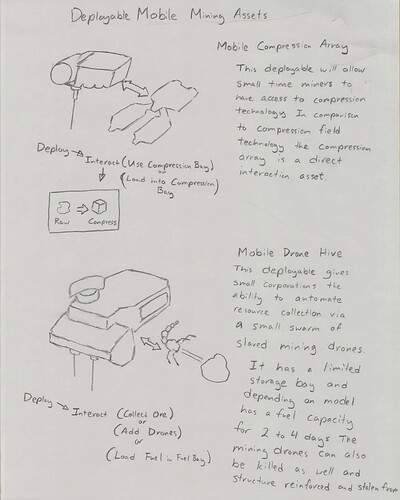 Deployable Mobile Mining Assets
Mobile Compression Array
This deployable will allow
small time miners to
have access to compression
technology. In comparison
to compression field
technology the compression
array is a direct
interaction asset.
Deploy → Interact (Use Compression Bay)
or
(Load into Compression)
Bay
Raw Compress
Mobile Drone Hive
This deployable gives
small corporations the
ability to automate
resource collection via
a small swarm of
slaved mining drones.
It has a limited
storage bay and
depending on model
has a fuel capacity
for 2 to 4 days The
mining drones can also
be killed as well and
structure reinforced and stolen from
Deploy → Interact (Collect Ore)
or
(Add Drones)
or
(Load Fuel in Fuel Bay)